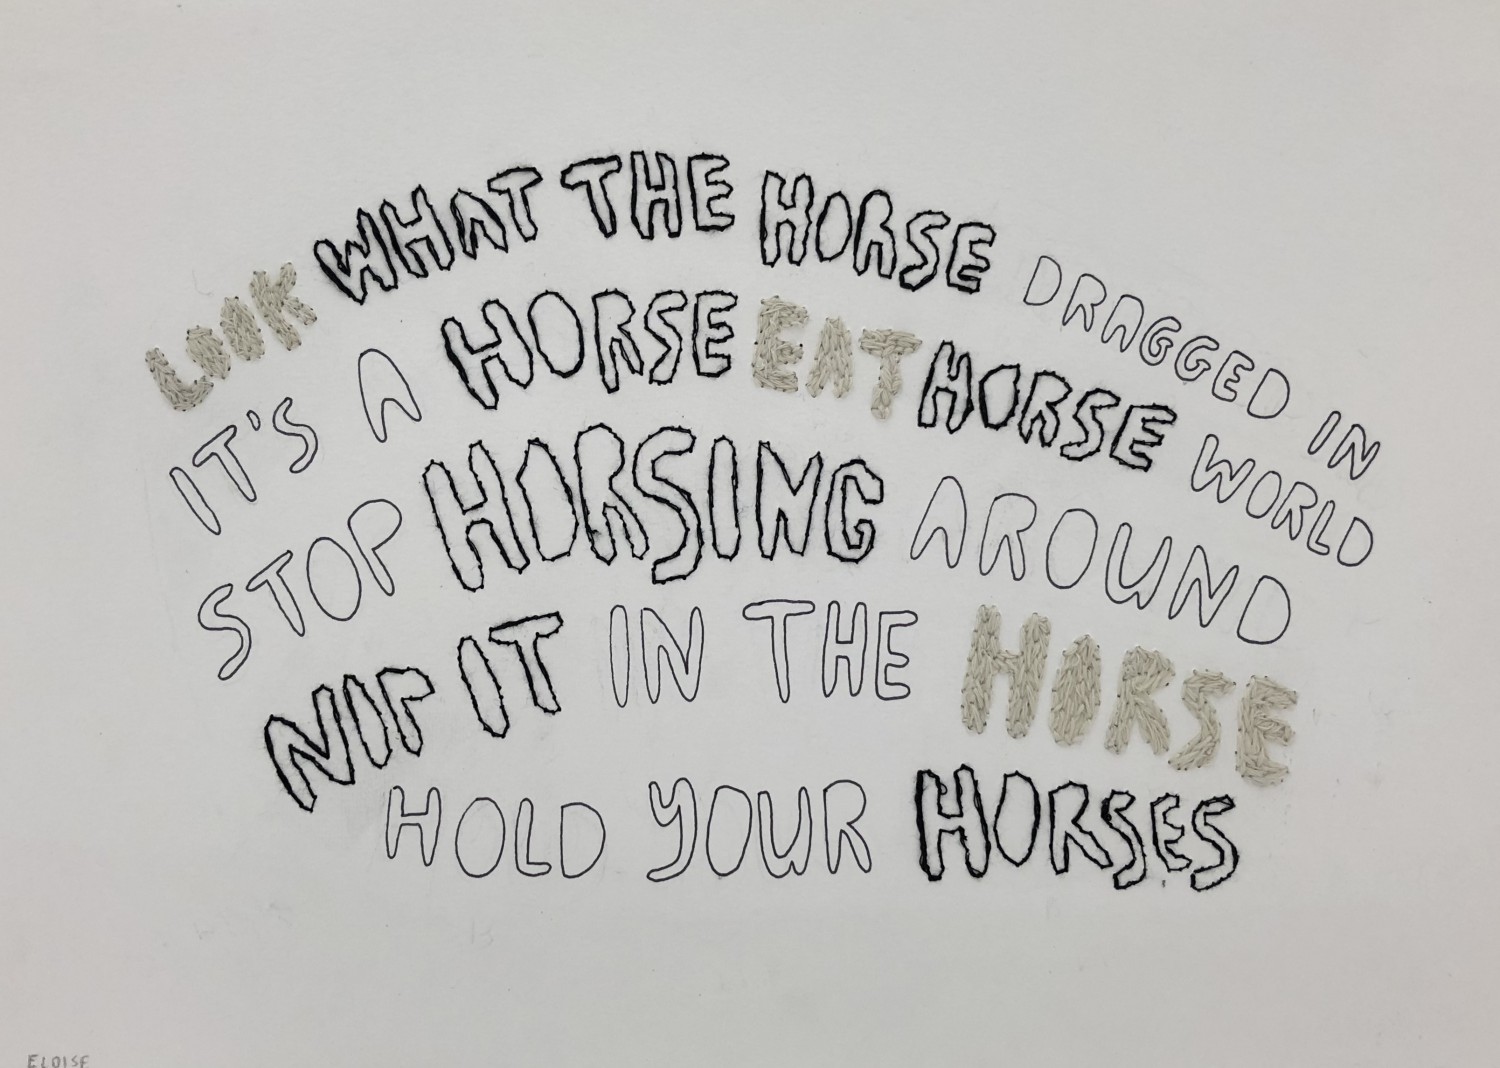 LOOK WHAT THE HORSE DRAGGED IN
IT'S A HORSE EAT HORSE WORLD
STOP HORSING AROUND
NIP IT IN THE HORSE
HOLD YOUR HORSES
ELOISE